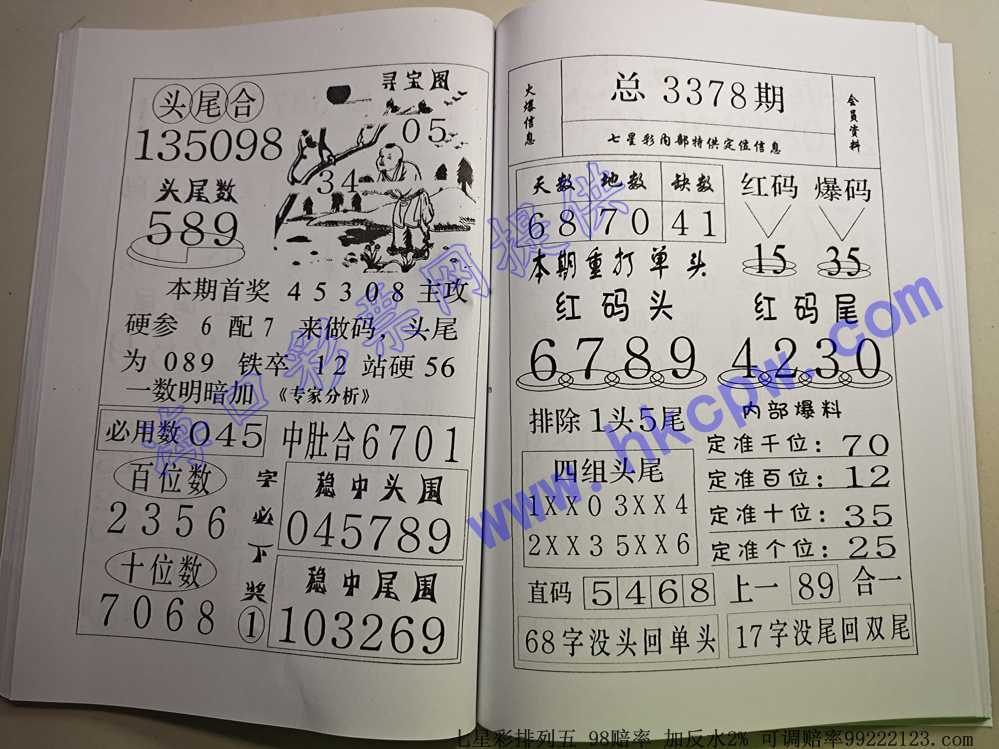 头尾合
135098
寻宝图
05
34
头尾数
589
本期首奖 45308 主攻
硬参 6 配 7 来做码，头尾
为 089 铁卒 12 站硬 56
一数明暗加 《专家分析》
必用数 045
中肚合6701
百位数
2356
十位数
7068
字必下奖①
稳中头围
045789
稳中尾围
103269
火爆信息
总 3378期
七星彩内部特供定位信息
会员资料
天数 地数 缺数
68 70 41
红码 爆码
15 35
本期重打单头
红码头
6789
红码尾
4230
排除1头5尾
四组头尾
1XX0 3XX4
2XX3 5XX6
内部爆料
定准千位：70
定准百位：12
定准十位：35
定准个位：25
直码 5468 上一 89 合一
68字没头回单头
17字没尾回双尾
海口彩票网提供
www.hkcpw.com
七星彩排列五 98赔率 加反水2% 可调赔率99222123.com